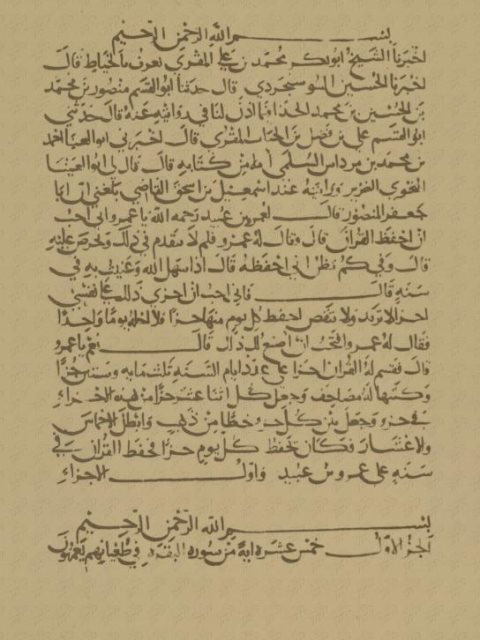 بسم الله الرحمن الرحيم
اخبرنا الشيخ ابو بكر محمد بن علي المقري يعرف بالخياط قال
اخبرنا الحسين السوسنجردي قال حدثنا ابو القسم منصور بن محمد
بن الحسين بن محمد الحذا فيما اذن لنا في روايته عنه قال حدثني
ابو القسم علي بن فضل بن المقري قال اخبرني ابو العينا احمد
بن محمد بن مرداس السلمي املا من كتابه قال قال لي ابو العينا
النحوي الضرير ورايته عند اسمعيل بن اسحق القاضي بلغني ان ابا
جعفر المنصور قال لعمرو بن عبيد رحمه الله يا عمرو اني احب
ان احفظ القران قال فقال له عمرو فلم لا تتقدم في ذلك وتحرص عليه
قال وفي كم تظن اني احفظه قال اذا سهل الله وعنيت به في
سنة قال فاني احب ان اجزي ذلك على نفسي
اجزا لا تزيد ولا تنقص احفظ كل يوم منها جزا فلا اخله يوما واحدا
فقال له عمرو قال نعم يا عمرو
قال فقسم له القران اجزا على عدد ايام السنة ثلثمايه وستين جزا
وكتبها له مصاحف وجعل كل اثنا عشر جزا من هذه الاجزاء
في جزو وجعل بين كل جزو خطا من ذهب وابطل الاخماس
والاعشار فكان يحفظ كل يوم جزا فحفظ القران في
سنة على عمرو بن عبيد واول الاجزاء
بسم الله الرحمن الرحيم
الجز الاول خمس عشره اية من سوره البقره في طغيانهم يعمهون